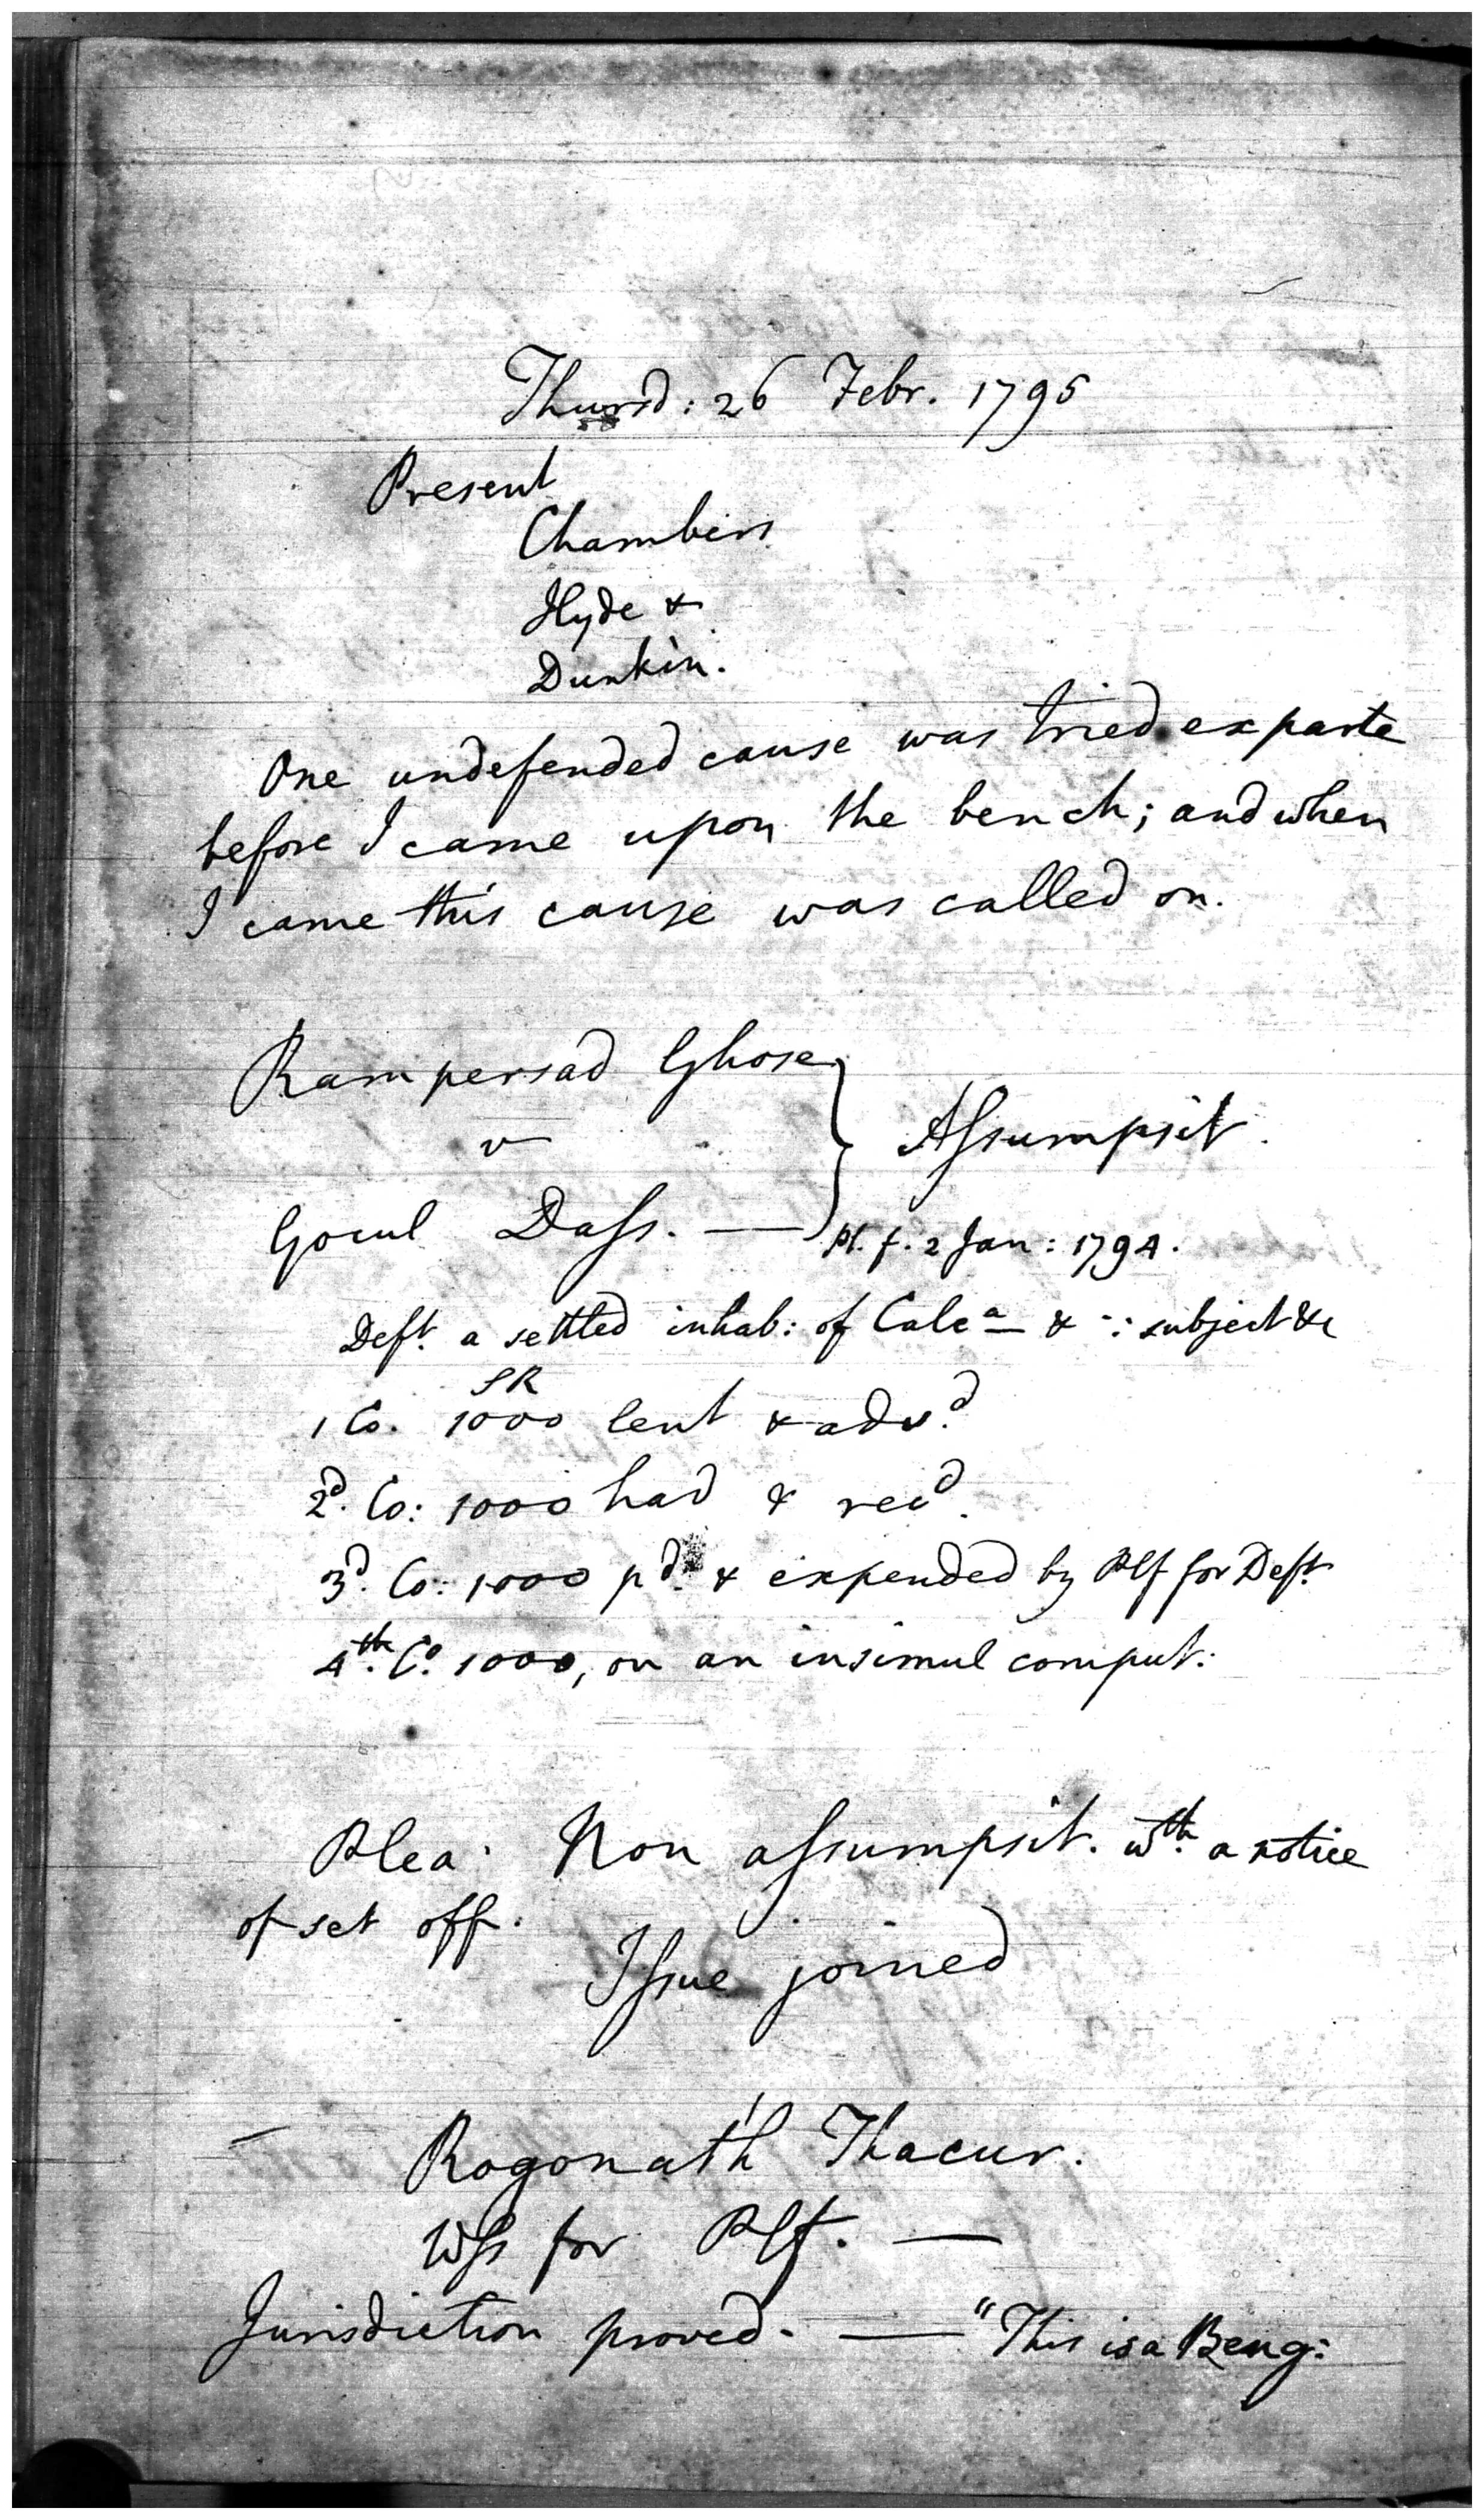 Thursd: 26 Febr. 1795
Present
Chambers
Hyde &
Dunkin.
One undefended cause was tried exparte
before I came upon the bench; and when
I came this cause was called on.
Rampersad Ghose
v
Assumpsit.
Gocul Dass. —
Pl. f. 2 Jan: 1794.
Deft. a settled inhab: of Calcᵃ & ∵ subject &c
SR
1 Co. 1000 lent & advᵈ.
2ᵈ. Co: 1000 had & recᵈ.
3ᵈ. Co: 1000 pᵈ. & expended by Plf for Deft.
4ᵗʰ. Cº. 1000, on an insimul comput:
Plea. Non assumpsit. wᵗʰ. a notice
of set off.
Issue joined
Rogonath Thacur.
Wss for Plf. —
Jurisdiction proved. — "This is a Beng: